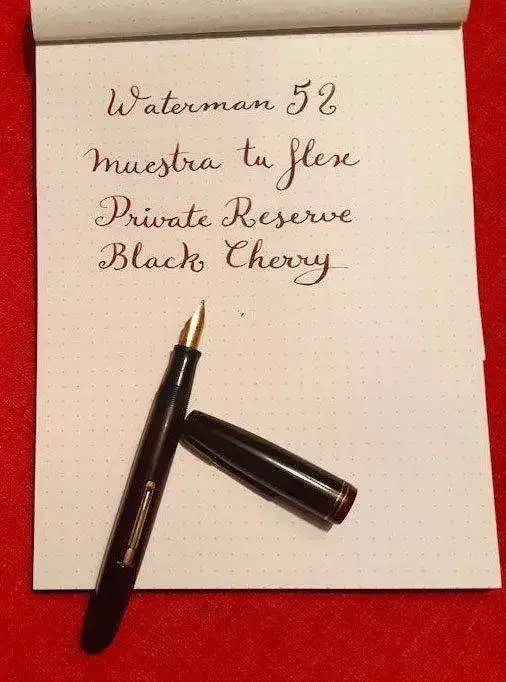 Waterman 52
Muestra tu flex
Private Reserve
Black Cherry